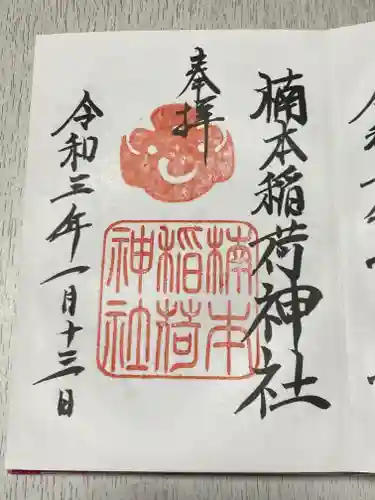 楠本稲荷神社
奉拝
令和三年一月十三日
楠本
稲荷
神社